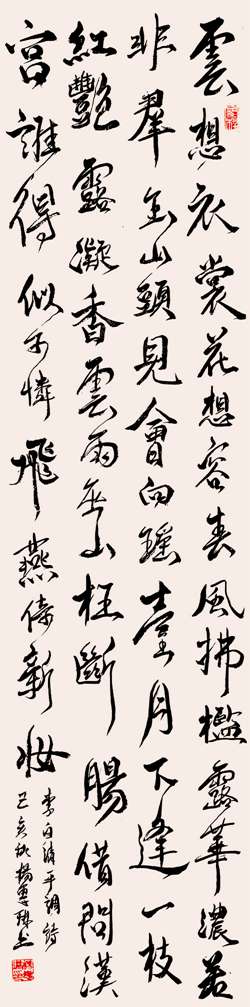 雲想衣裳花想容春風拂檻露華濃若
非羣玉山頭見會向瑤臺月下逢一枝
紅豔露凝香雲雨巫山枉斷腸借問漢
宮誰得似可憐飛燕倚新妝
李白清平調詩
己亥秋楊